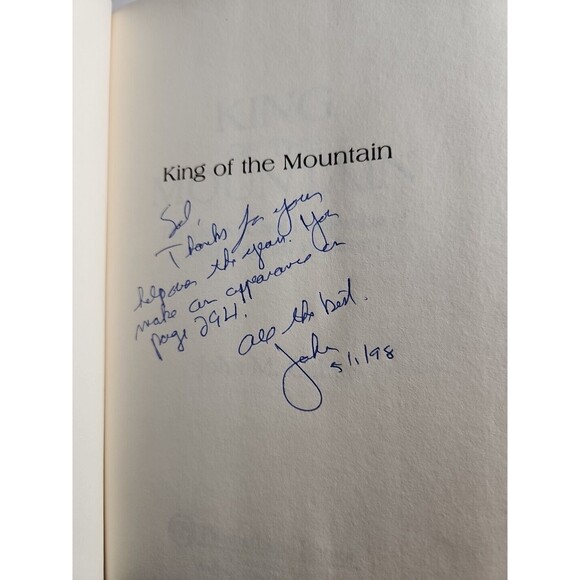 King of the Mountain
Sol,
Thanks for your
help over the years. You
make an appearance on
page 294.
All the best.
John
5/1/98
KING